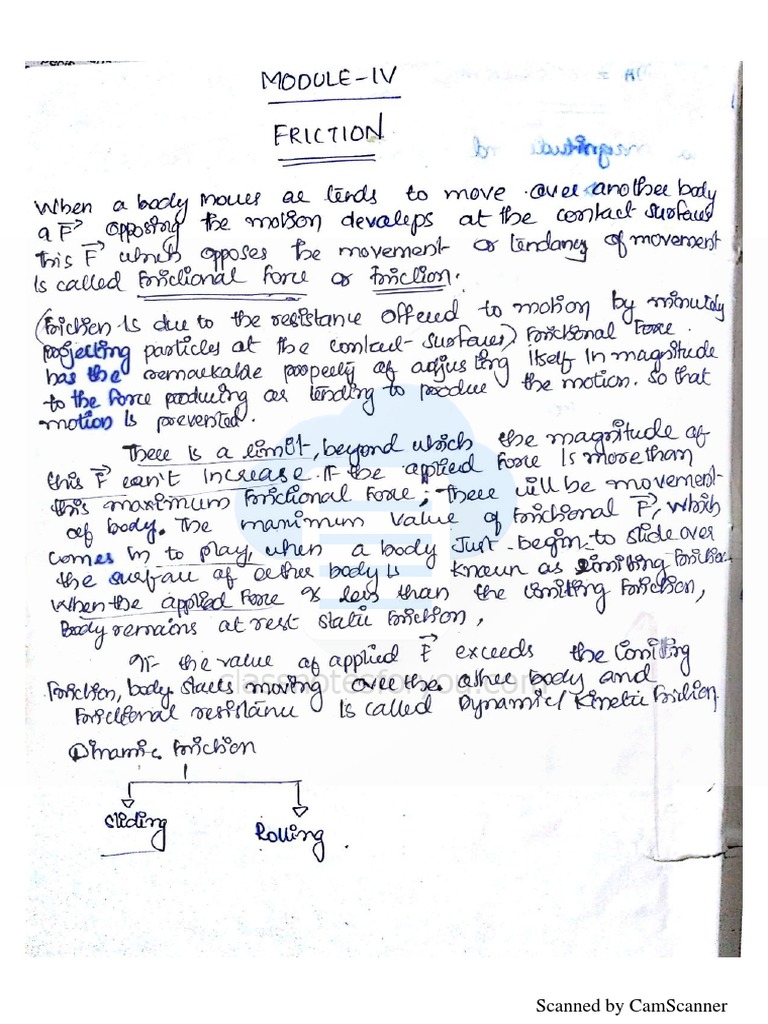 MODULE-IV
FRICTION
When a body moves or tends to move over another body
a F→ opposing the motion develops at the contact surfaces
this F→ which opposes the movement or tendancy of movement
is called Frictional Force or Friction.
(Friction is due to the resistance offered to motion by minutely
projecting particles at the contact-surfaces) Frictional Force
has the remarkable property of adjusting itself in magnitude
to the force producing or tending to produce the motion. so that
motion is prevented.
There is a limit, beyond which the magnitude of
this F→ can't increase. If the applied Force is more than
this maximum Frictional Force, there will be movement
of body. The maximum value of frictional F→, which
comes in to play, when a body just begin to slide over
the surface of other body is known as limiting friction
When the applied Force is less than the limiting friction,
Body remains at rest static friction,
If the value of applied F→ exceeds the limiting
Friction, body starts moving over the other body and
Frictional resistance is called Dynamic/Kinetic friction
Dinamic friction
Sliding
Rolling
classnotesforyou.com
Scanned by CamScanner